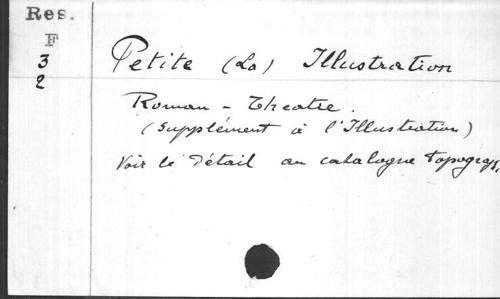 Res.
F
3
2
Petite (La) Illustration
Roman - Theatre.
(Supplément à l'Illustration)
Voir le Détail au catalogue topograp.